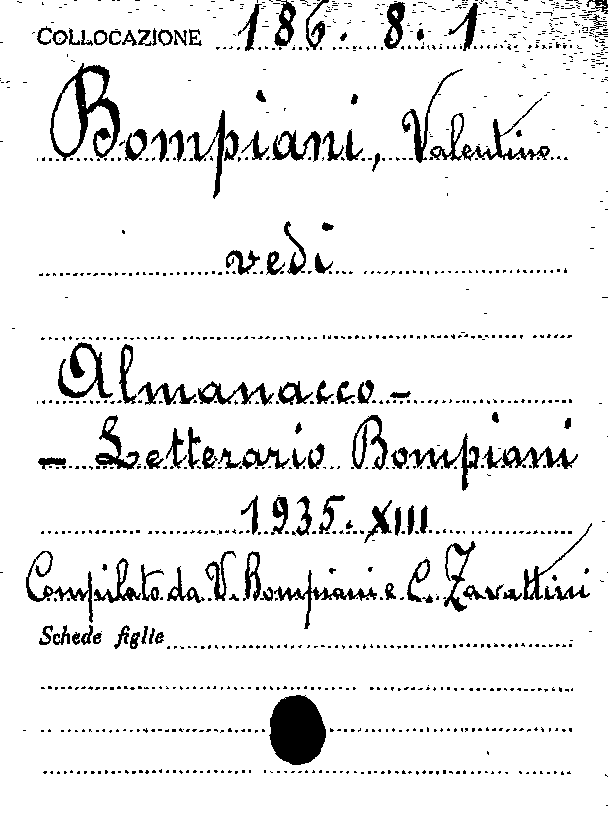 COLLOCAZIONE 186. 8. 1
Bompiani, Valentino
vedi
Almanacco -
- Letterario Bompiani
1935. XIII
Compilato da V. Bompiani e C. Zavattini
Schede figlie